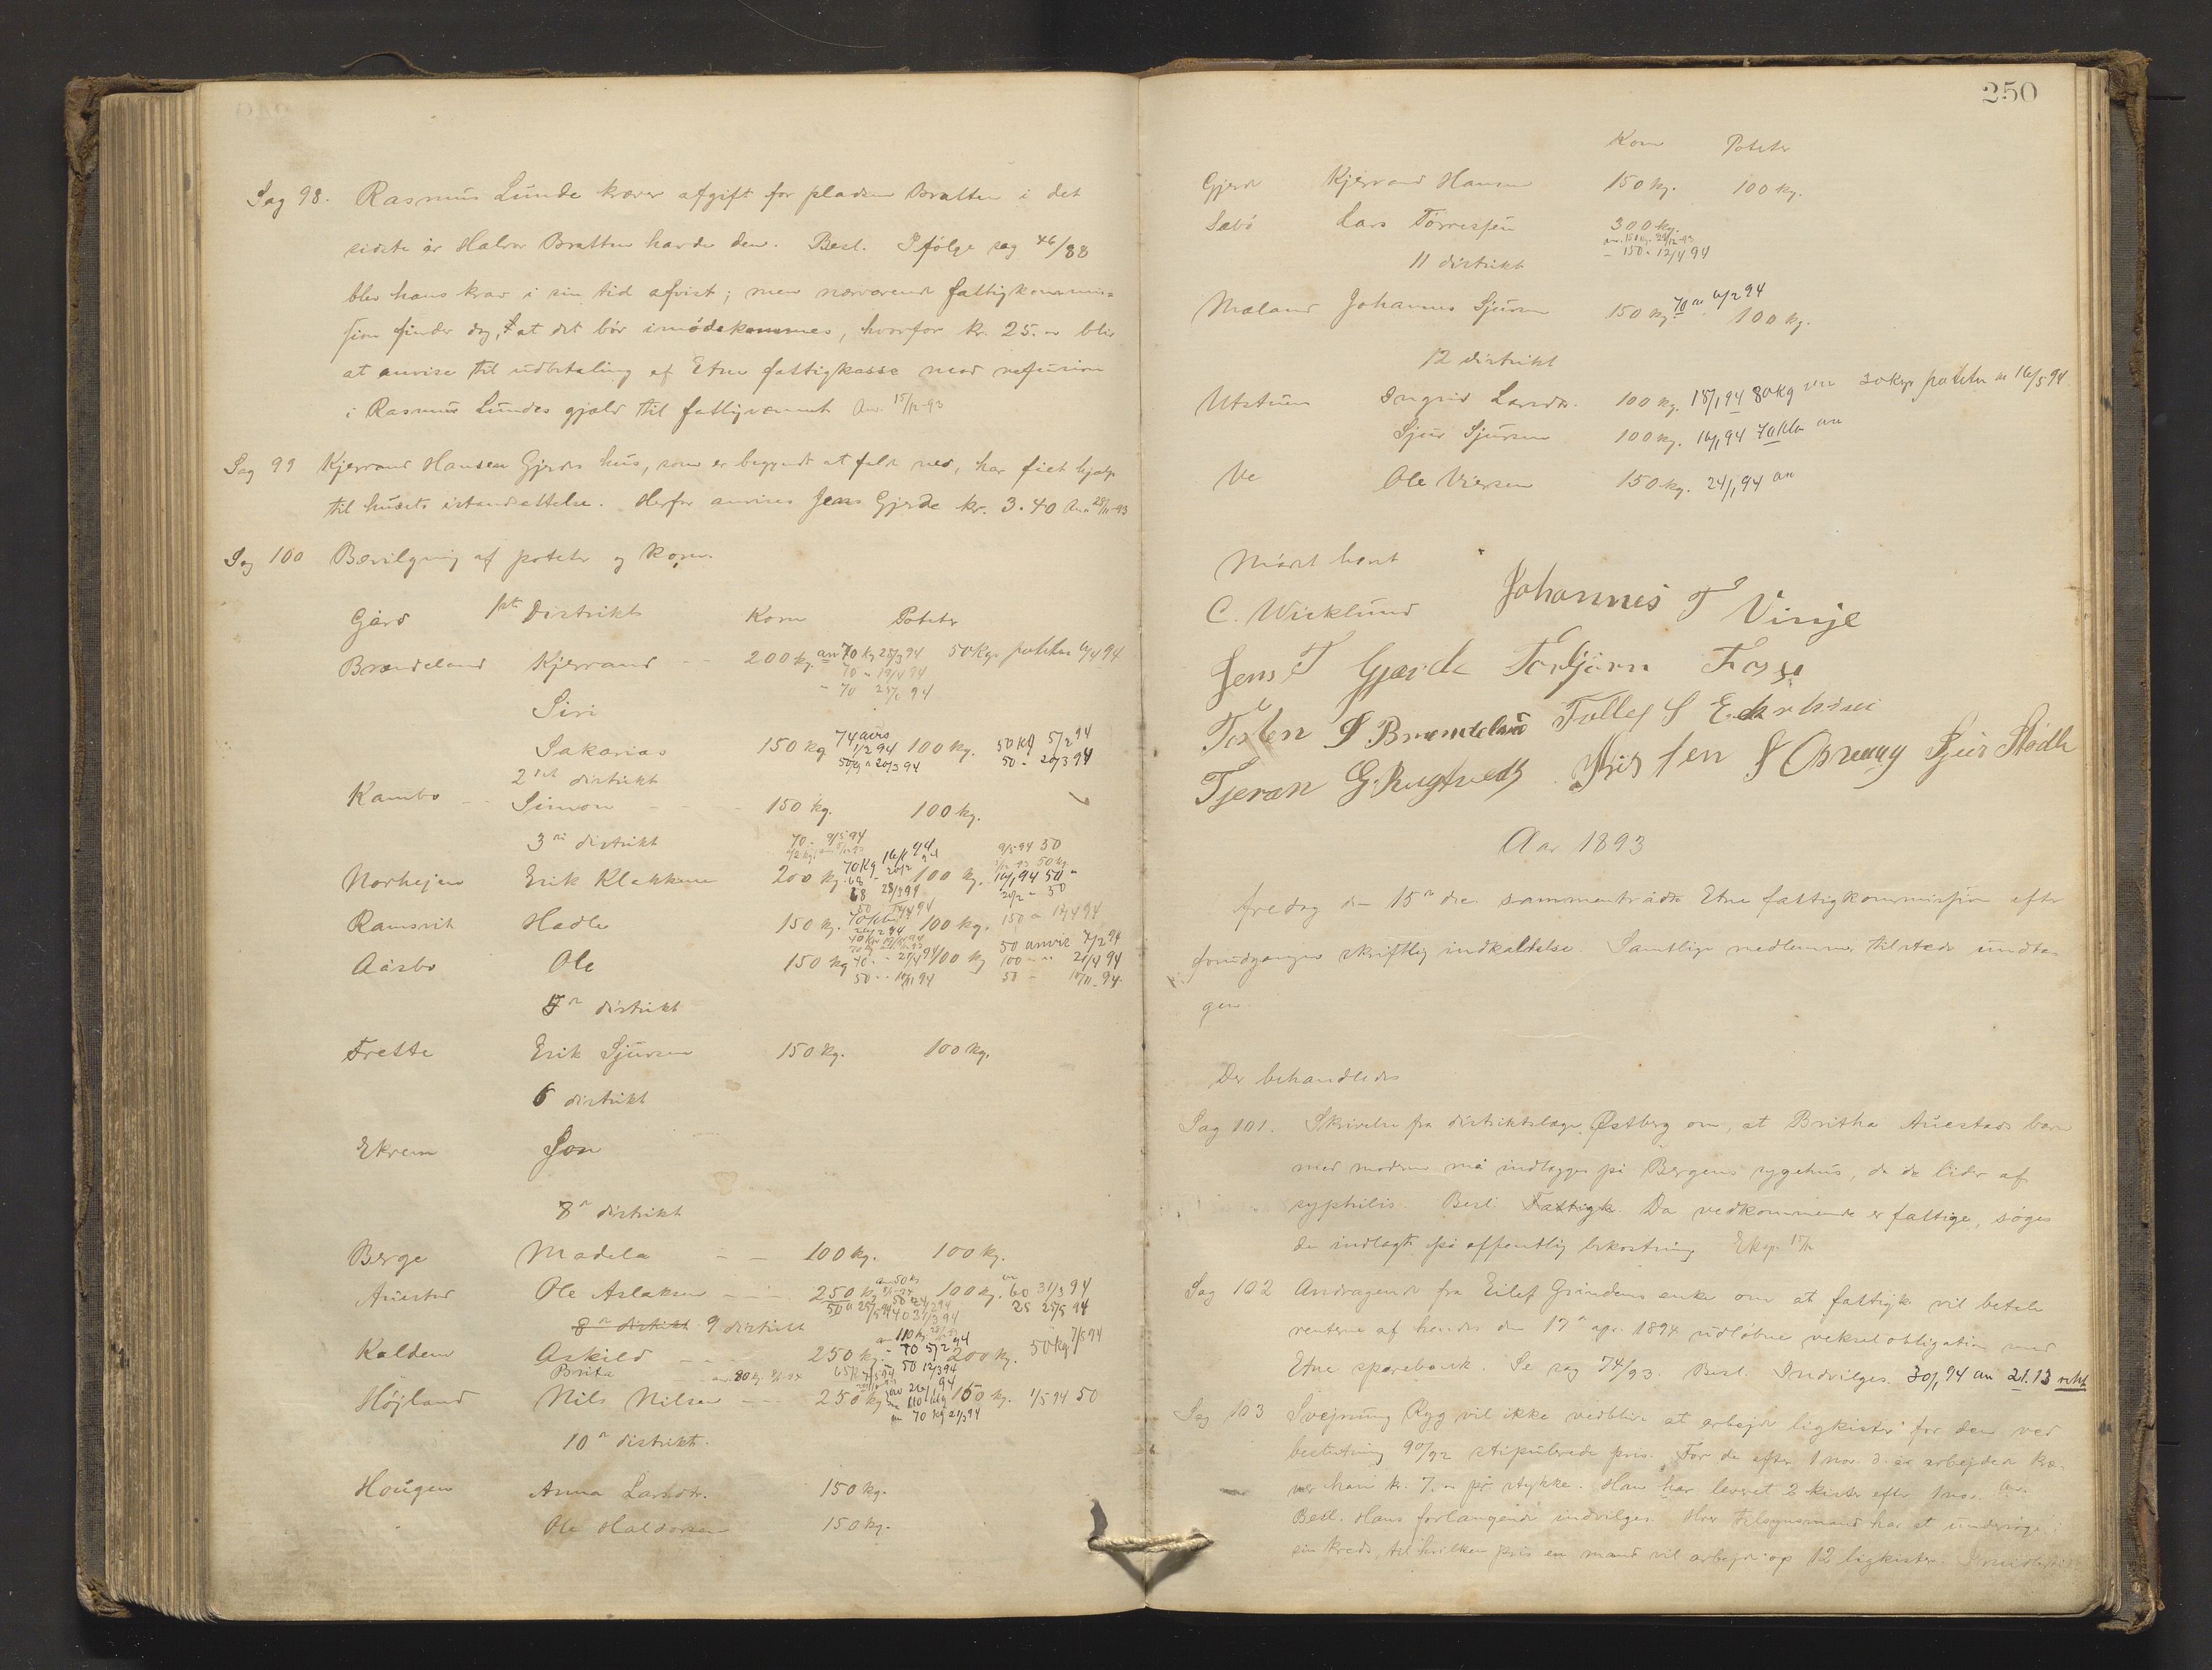 Sag 98. Rasmus Lunde kræver afgift for pladsen Bratten i det
sidste år Halvor Bratten havde den. Besl. Ifølge sag 46/88
blev hans krav i sin tid afvist; men nærværende fattigkommis=
sion finder dog, at det bør imødekommes, hvorfor kr. 25.- blir
at anvise til udbetaling af Etne fattigkasse mod refusion
i Rasmus Lundes gjæld til fattigvæsenet Anv. 15/12-93
Sag 99 Kjerrand Hansen Gjerdes hus, som er begyndt at falde ned, har fået hjælp
til husets istandsættelse. Herfor anvises Jens Gjerde kr. 3.40 Anv. 28/11-93
Sag 100 Bevilgning af poteter og korn.
Gård 1ste Distrikt Korn Poteter
Brændeland Kjerrand 200 kg. anv 70 kg 28/3 94 50 kgr poteter 4/4 94
70 - 19/4 94
- 70 94
Siri
Sakarias 150 kg 74 1/2 94 100 kg. 50 kg 5/2 94
50 kg 20/3 94 50 - 20/3 94
2det distrikt
Kambo Simon 150 kg. 100 kg.
3die distrikt
70 - 9/5 94 9/5 94 50
Nørhejm Erik Klakken 200 kg. 70 kg 16/1 94 100 kg. 16/1 94 50
68 28/3 94 50
Ramsvik Hadle 150 kg. 100 kg. 150 94
Aarbø Ole 150 kg 21/4 94 100 kg 50 anvis 7/2 94
100 21/4 94
50 - 94 50 - 10/11 - 94.
5te distrikt
Frette Erik Sjursen 150 kg. 100 kg.
6 distrikt
Ekrem Jon
8de distrikt
Berge Madela 100 kg. 100 kg.
Auestad Ole Aslaksen 250 kg 100 kg. 60 31/3 94
25 25/5 94
8de distrikt 9 distrikt
Kaldem Askild 250 kg. 70 5/2 94 200 kg. 50 kg 7/5 94
Brita 80 kg 50 12/3 94
Højland Nils Nilsen 250 kg 26/1 94 150 kg. 1/5 94 50
70 kg 21/3 94
10de distrikt.
Hougen Anna Larsdtr. 150 kg.
Ole Haldorsen 150 kg.
250
Korn Poteter
Gjerde Kjerrand Hansen 150 kg. 100 kg.
Sæbø Lars Tørresen 300 kg.
anv. 150 kg. 29/12-93
- 150 - 12/4 94
11 distrikt
Mæland Johannes Sjursen 150 kg 70 an 6/2 94 100 kg.
12 distrikt
Utstuen Ingrid Larsdtr. 100 kg. 18/1 94 80 kg 30 kgr poteter an 16/5 94
Sjur Sjursen 100 kg. 16/1 94 70 kilo an
Ve Ole Viersen 150 kg. 24/1 94 an
Mødet hævet
C. Wicklund Johannes T Vinje
Jens T Gjærde Torbjørn Fosse
Tosten S Brændeland Tollef S Eckrheim
Tjeran G. Rygtvedt Kristen S Øsnaug Sjur Stødle
Aar 1893
fredag den 15de dec. sammentrådte Etne fattigkommission efter
forudgangen skriftlig indkaldelse. Samtlige medlemmer tilstede undta-
gen
Der behandledes
Sag 101. Skrivelse fra distriktslæge Østberg om, at Britha Auestads barn
med moderen må indlægges på Bergens sygehus, da de lider af
syphilis. Besl. Fattigk. Da vedkommende er fattige, søges
de indlagt på offentlig bekostning Eksp. 15/12
Sag 102 Andragende fra Eilef Grindens enke om at fattigk. vil betale
renterne af hendes den 17de apr. 1894 udløbne vekselobligation med
Etne sparebank. Se sag 74/93. Besl. Indvilges. 30/1 94 an 21.13
Sag 103 Svejnung Ryg vil ikke vedblive at arbejde ligkister for den ved
beslutning 90/92 stipulerede pris. For de efter 1 nov. d. år arbejdede kræ-
ver han kr. 7.- pr stykke. Han har leveret 2 kister efter 1 nov. Anv.
Besl. Hans forlangende indvilges. Hver tilsynsmand har at undersøge i
sin kreds, til hvilken pris en mand vil arbejde op 12 ligkister.